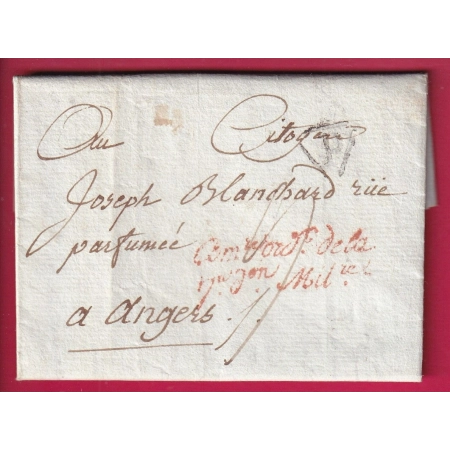 Au Citoyen
Joseph Blanchard rüe
parfumeé
a angers
Com.re Ord.r de la
17e D.on Mil.re